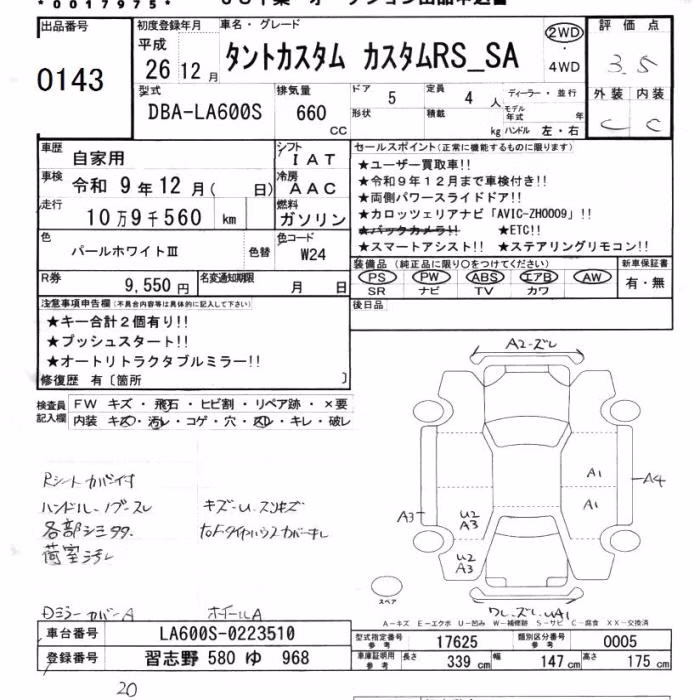 *0017975*
出品番号 初度登録年月 車名・グレード 評価点
0143
平成 26 12月
タントカスタム カスタムRS_SA
2WD ・ 4WD
3.5
外装 内装
C C
型式 排気量 ドア 定員 ディーラー・並行
DBA-LA600S 660 CC 5 4 人
形状 積載 kg モデル年式 年
ハンドル 左・右
車歴 自家用 シフト IAT
車検 令和 9年12月( 日) 冷房 AAC
走行 10万9千560 km 燃料 ガソリン
色 パールホワイトⅢ 色替 色コード W24
R券 9,550円 名変通知期限 月 日
セールスポイント(正常に機能するものに限ります)
★ユーザー買取車!!
★令和9年12月まで車検付き!!
★両側パワースライドドア!!
★カロッツェリアナビ「AVIC-ZH0009」!!
★バックカメラ!! ★ETC!!
★スマートアシスト!! ★ステアリングリモコン!!
装備品(純正品に限り○をつけてください) 新車保証書
PS PW ABS エアB AW 有・無
SR ナビ TV カワ
後日品
注意事項申告欄(不具合内容等は具体的に記入して下さい)
★キー合計2個有り!!
★プッシュスタート!!
★オートリトラクタブルミラー!!
修復歴 有〔箇所 〕
検査員記入欄
FW キズ・飛石・ヒビ割・リペア跡・×要
内装 キズ・汚レ・コゲ・穴・スレ・キレ・破レ
Rシートカバー付
各部シミ
荷室汚レ
A2-ズレ
A1
A1
A4
A3
U2
A3
U2
A3
スペア
Dミラーカバー A ホイールA
A-キズ E-エクボ U-凹み W-補修跡 S-サビ C-腐食 XX-交換済
車台番号 LA600S-0223510
登録番号 習志野 580 ゆ 968
型式指定番号 参考 17625 類別区分番号 参考 0005
車庫証明用 参考 長さ 339 cm 幅 147 cm 高さ 175 cm
20